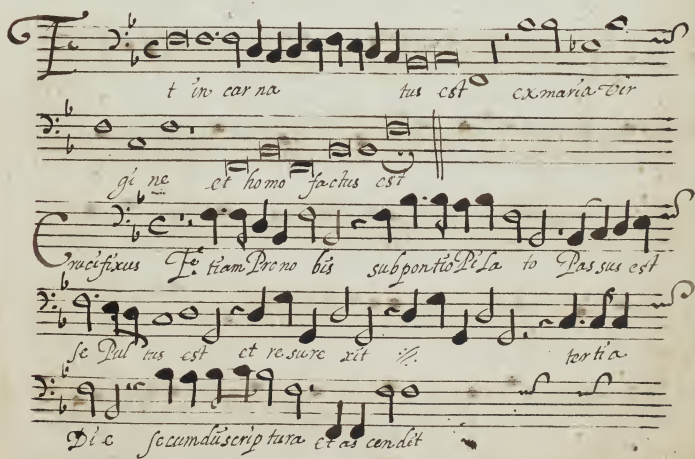 Et in car na tus est ex maria vir
gi ne et homo factus est
Crucifixus Etiam Pro no bis sub pontio Pi la to Passus est
se Pul tus est et re sure xit :||: tertia
Di e secumdu scrip tura et as cendit